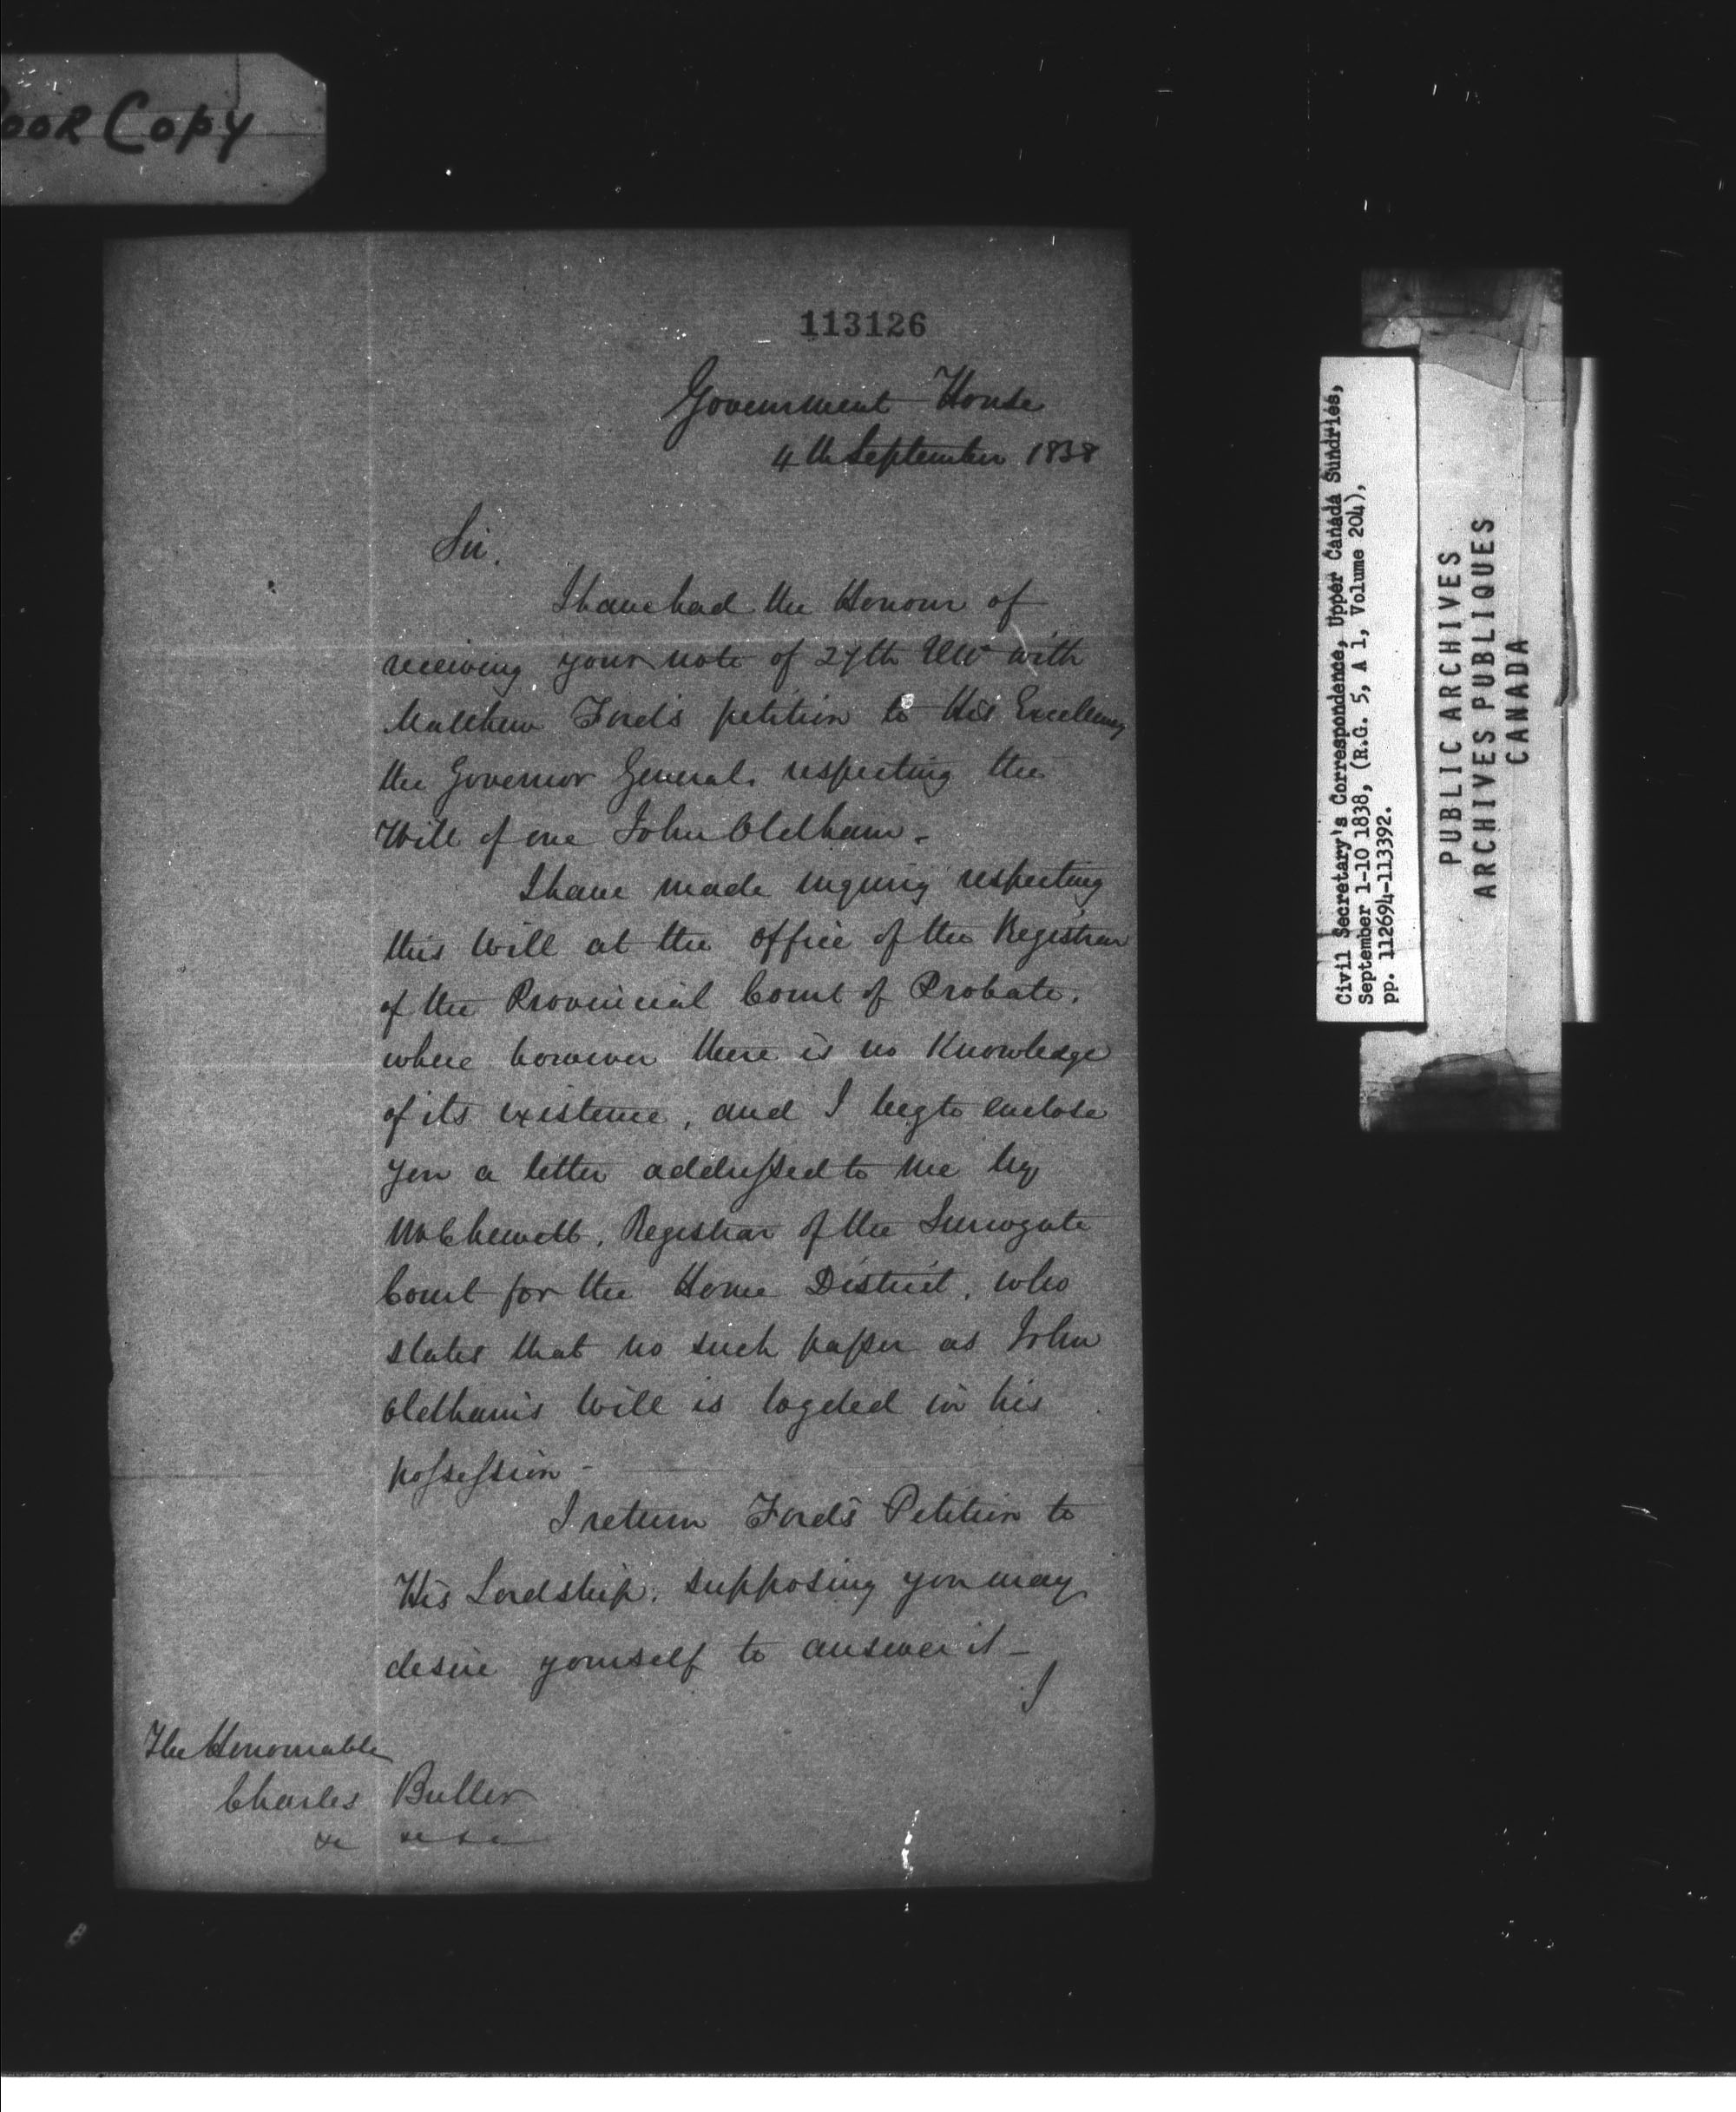 Poor Copy
113126
Government House
4th September 1838
Sir.
I have had the Honour of
receiving your note of 27th Ulto with
Matthew Ford's petition to His Excellency
the Governor General, respecting the
Will of one John Oldham -
I have made inquiry respecting
this Will at the office of the Registrar
of the Provincial Court of Probate,
where however there is no Knowledge
of its existence, and I beg to enclose
you a letter addressed to me by
Mr Chewett, Registrar of the Surrogate
Court for the Home District, who
states that no such paper as John
Oldham's Will is lodged in his
possession -
I return Ford's Petition to
His Lordship, supposing you may
desire yourself to answer it -
I
The Honourable
Charles Buller
&c &c &c
Civil Secretary's Correspondence, Upper Canada Sundries,
September 1-10 1838, (R.G. 5, A 1, Volume 204),
pp. 112694-113392.
PUBLIC ARCHIVES
ARCHIVES PUBLIQUES
CANADA